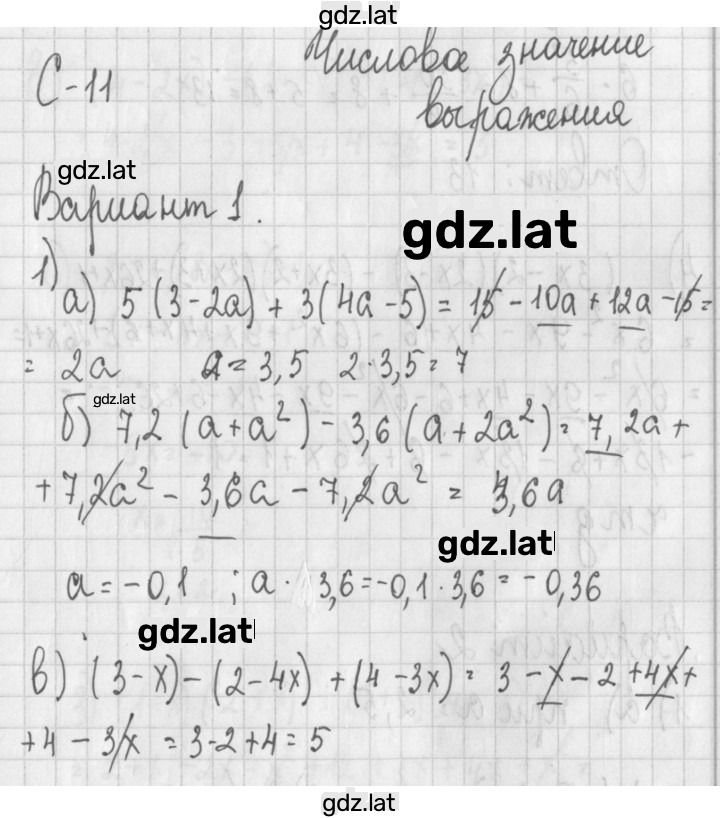 gdz.lat
С-11 Числовое значение
выражения
gdz.lat
Вариант 1.
gdz.lat
1)
а) 5(3-2a) + 3(4a-5) = 15 - 10a + 12a - 15 =
= 2a a = 3,5 2·3,5 = 7
gdz.lat
б) 7,2 (a+a²) - 3,6 (a+2a²) = 7,2a +
+ 7,2a² - 3,6a - 7,2a² = 3,6a
gdz.lat
a = -0,1 ; a · 3,6 = -0,1 · 3,6 = -0,36
gdz.lat
в) (3-x) - (2-4x) + (4-3x) = 3 - x - 2 + 4x +
+ 4 - 3x = 3-2+4 = 5
gdz.lat